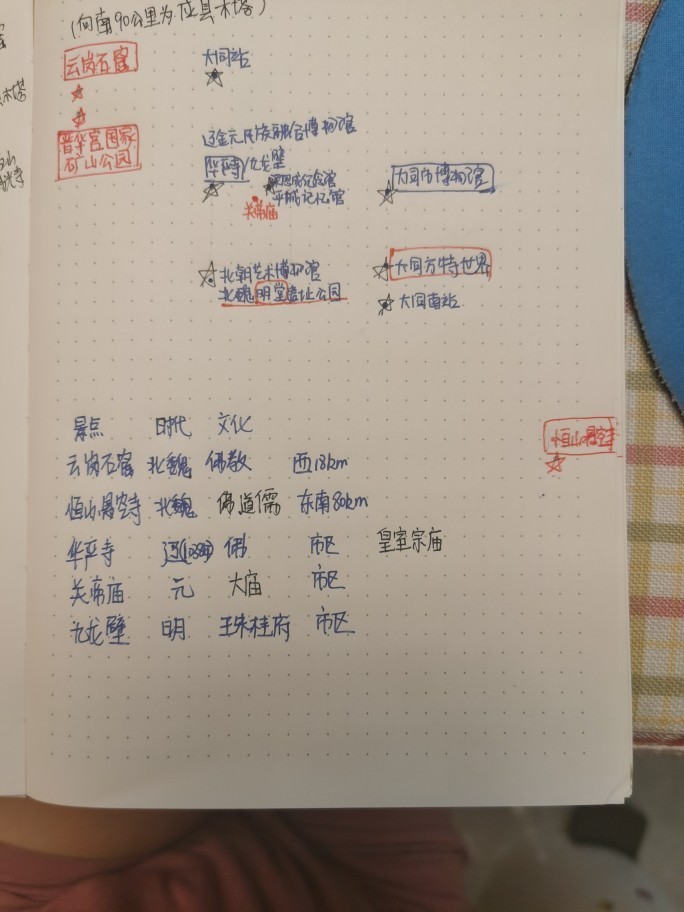 (向南90公里为应县木塔)
云岗石窟
大同站
晋华宫国家
矿山公园
辽金元民族融合博物馆
华严寺/九龙壁
梁思成纪念馆
平城记忆馆
关帝庙
大同市博物馆
北朝艺术博物馆
北魏明堂遗址公园
大同方特世界
大同南站
恒山悬空寺
景点 时代 文化
云岗石窟 北魏 佛教 西18km
恒山悬空寺 北魏 佛道儒 东南80km
华严寺 辽(1038) 佛 市区 皇室宗庙
关帝庙 元 大庙 市区
九龙壁 明 王朱桂府 市区
木塔